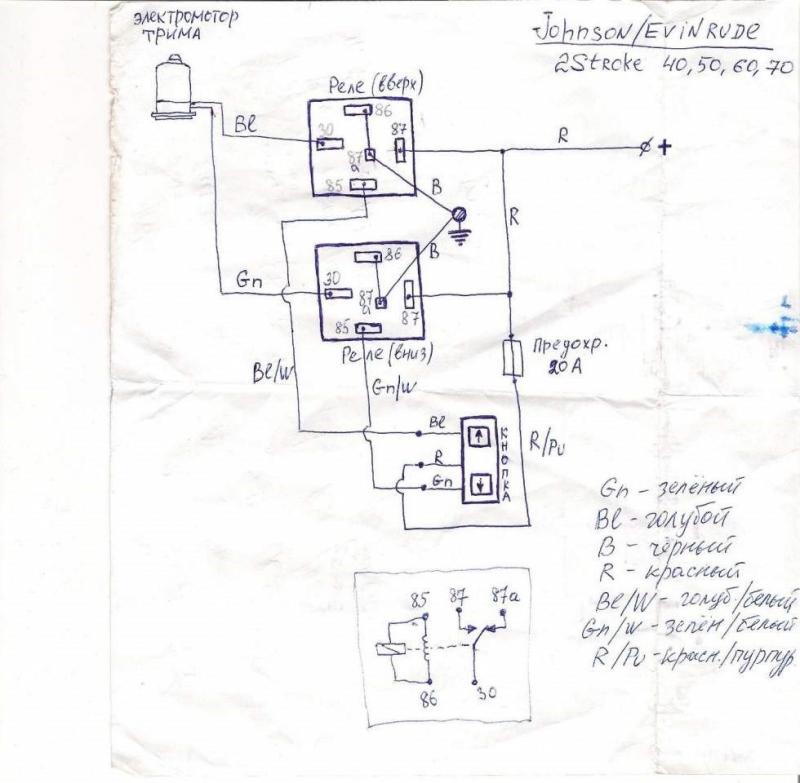 электромотор
трима
Johnson/EVINRUDE
2Stroke 40, 50, 60, 70
Реле (вверх)
86
Bl
30
87
87a
85
R
+
B
R
B
86
Gn
30
87a
87
85
Реле (вниз)
Предохр.
20A
Bl/W
Gn/W
Bl
R
Gn
КНОПКА
R/Pu
Gn - зелёный
Bl - голубой
B - чёрный
R - красный
Bl/W - голуб./белый
Gn/W - зелён/белый
R/Pu - красн./пурпур
85
87
87a
86
30